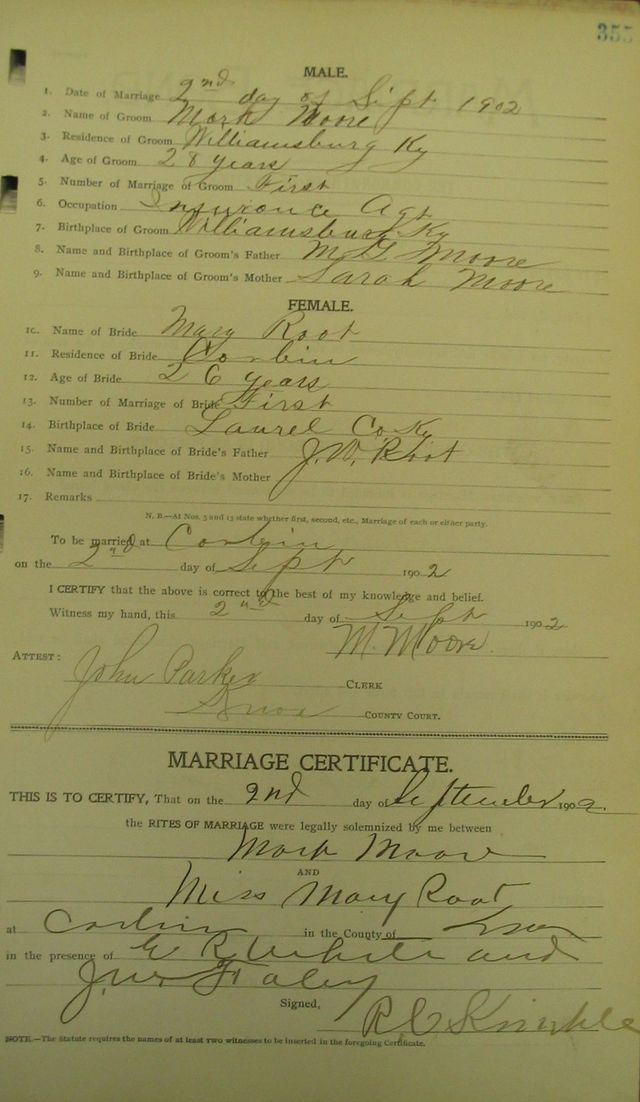 355
MALE.
1. Date of Marriage 2nd day of Sept 1902
2. Name of Groom Mark Moore
3. Residence of Groom Williamsburg Ky
4. Age of Groom 28 years
5. Number of Marriage of Groom First
6. Occupation Insurance Agt
7. Birthplace of Groom Williamsburg Ky
8. Name and Birthplace of Groom's Father M G Moore
9. Name and Birthplace of Groom's Mother Sarah Moore
FEMALE.
10. Name of Bride Mary Root
11. Residence of Bride Corbin
12. Age of Bride 26 years
13. Number of Marriage of Bride First
14. Birthplace of Bride Laurel Co Ky
15. Name and Birthplace of Bride's Father J. W. Root
16. Name and Birthplace of Bride's Mother
17. Remarks
N. B.—At Nos. 5 and 13 state whether first, second, etc., Marriage of each or either party.
To be married at Corbin
on the 2nd day of Sept 1902
I CERTIFY that the above is correct to the best of my knowledge and belief.
Witness my hand, this 2nd day of Sept 1902
M. Moore.
ATTEST: John Parker CLERK
Knox COUNTY COURT.
MARRIAGE CERTIFICATE.
THIS IS TO CERTIFY, That on the 2nd day of September 1902.
the RITES OF MARRIAGE were legally solemnized by me between
Mark Moore
AND
Miss Mary Root
at Corbin in the County of Knox
in the presence of G R White and
J. W. Faley
Signed,
R C
NOTE.—The Statute requires the names of at least two witnesses to be inserted in the foregoing Certificate.